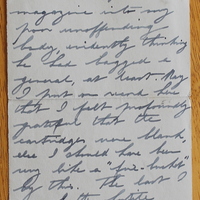 magazine into my
poor unoffending
body, evidently thinking
he had bagged a
general, at least. May
I put on record here
that I felt profoundly
grateful that the
cartridges were blank,
else I should have been
very like a "fire-bucket"
by this. The last I
of the